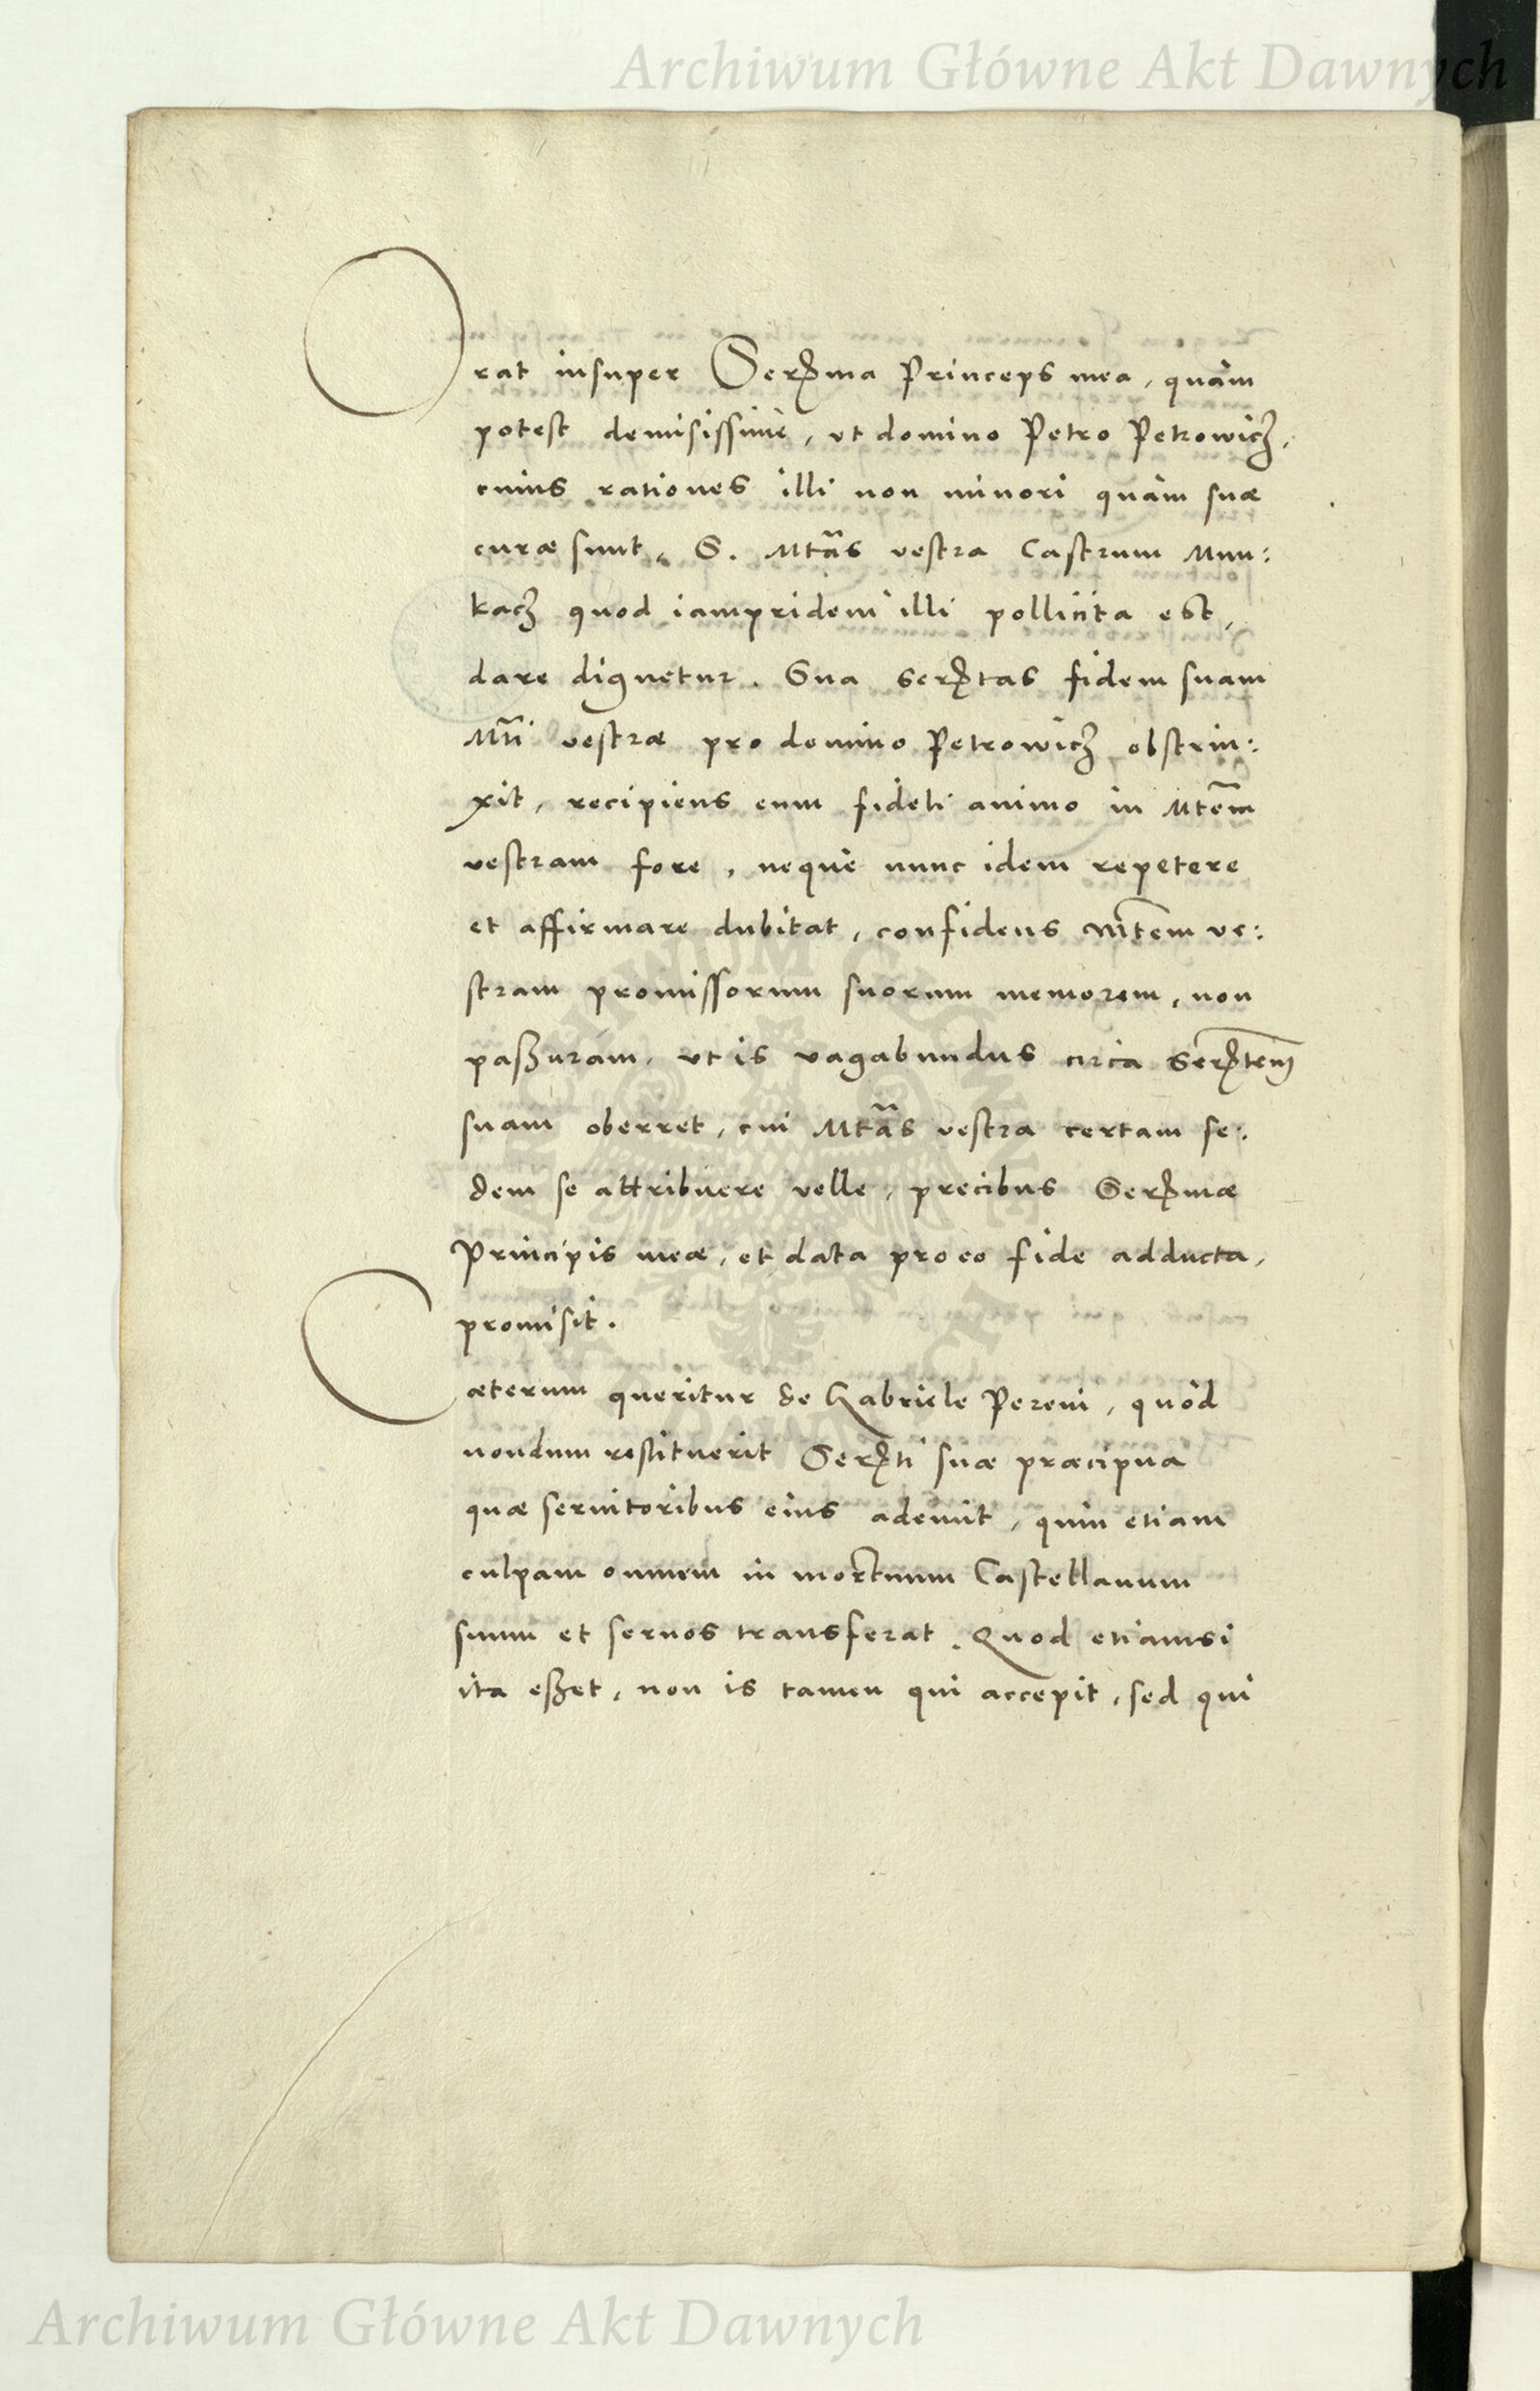 Archiwum Główne Akt Dawnych
Orat insuper Serꝫma Princeps mea, quàm
potest demisissimè, vt domino Petro Petrowicz,
cuius rationes illi non minori quàm suæ
curæ sunt, S. Mtãs vestra Castrum Mun:
kacz quod iampridem illi pollicita est,
dare dignetur. Sua serꝫtas fidem suam
Mti vestræ pro domino Petrowicz obstrin:
xit, recipiens eum fideli animo in Mtem
vestram fore, neque nunc idem repetere
et affirmare dubitat, confidens Mtem ve:
stram promissorum suorum memorem, non
paßuram, vt is vagabundus circa serꝫtem
suam oberret, cui Mtãs vestra certam se:
dem se attribuere velle, precibus Serꝫmæ
Principis meæ, et data pro eo fide adducta,
promisit.
Cæterum queritur de Gabriele Pereni, quòd
nondum restituerit Serꝫti suæ præcipua
quæ seruitoribus eius ademit, quin etiam
culpam omnem in mortuum Castellanum
suum et seruos transferat. Quod etiamsi
ita eßet, non is tamen qui accepit, sed qui
Archiwum Główne Akt Dawnych